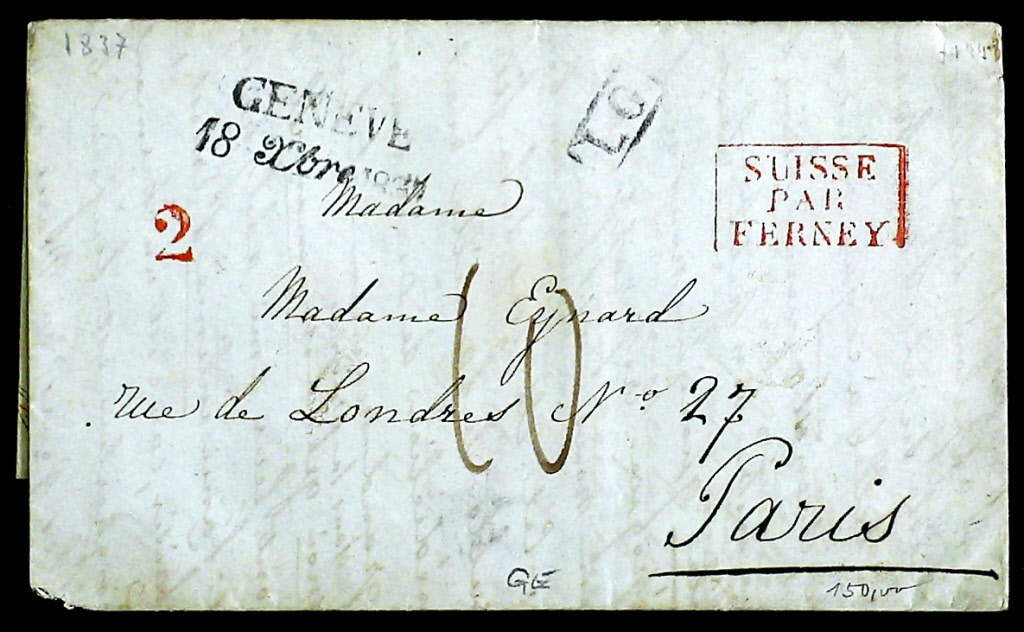 1837
GENEVE
LG
18 Xbre 1837
SUISSE
PAR
FERNEY
Madame
2
Madame Eynard
10
rue de Londres No 27
Paris
GE
150,00